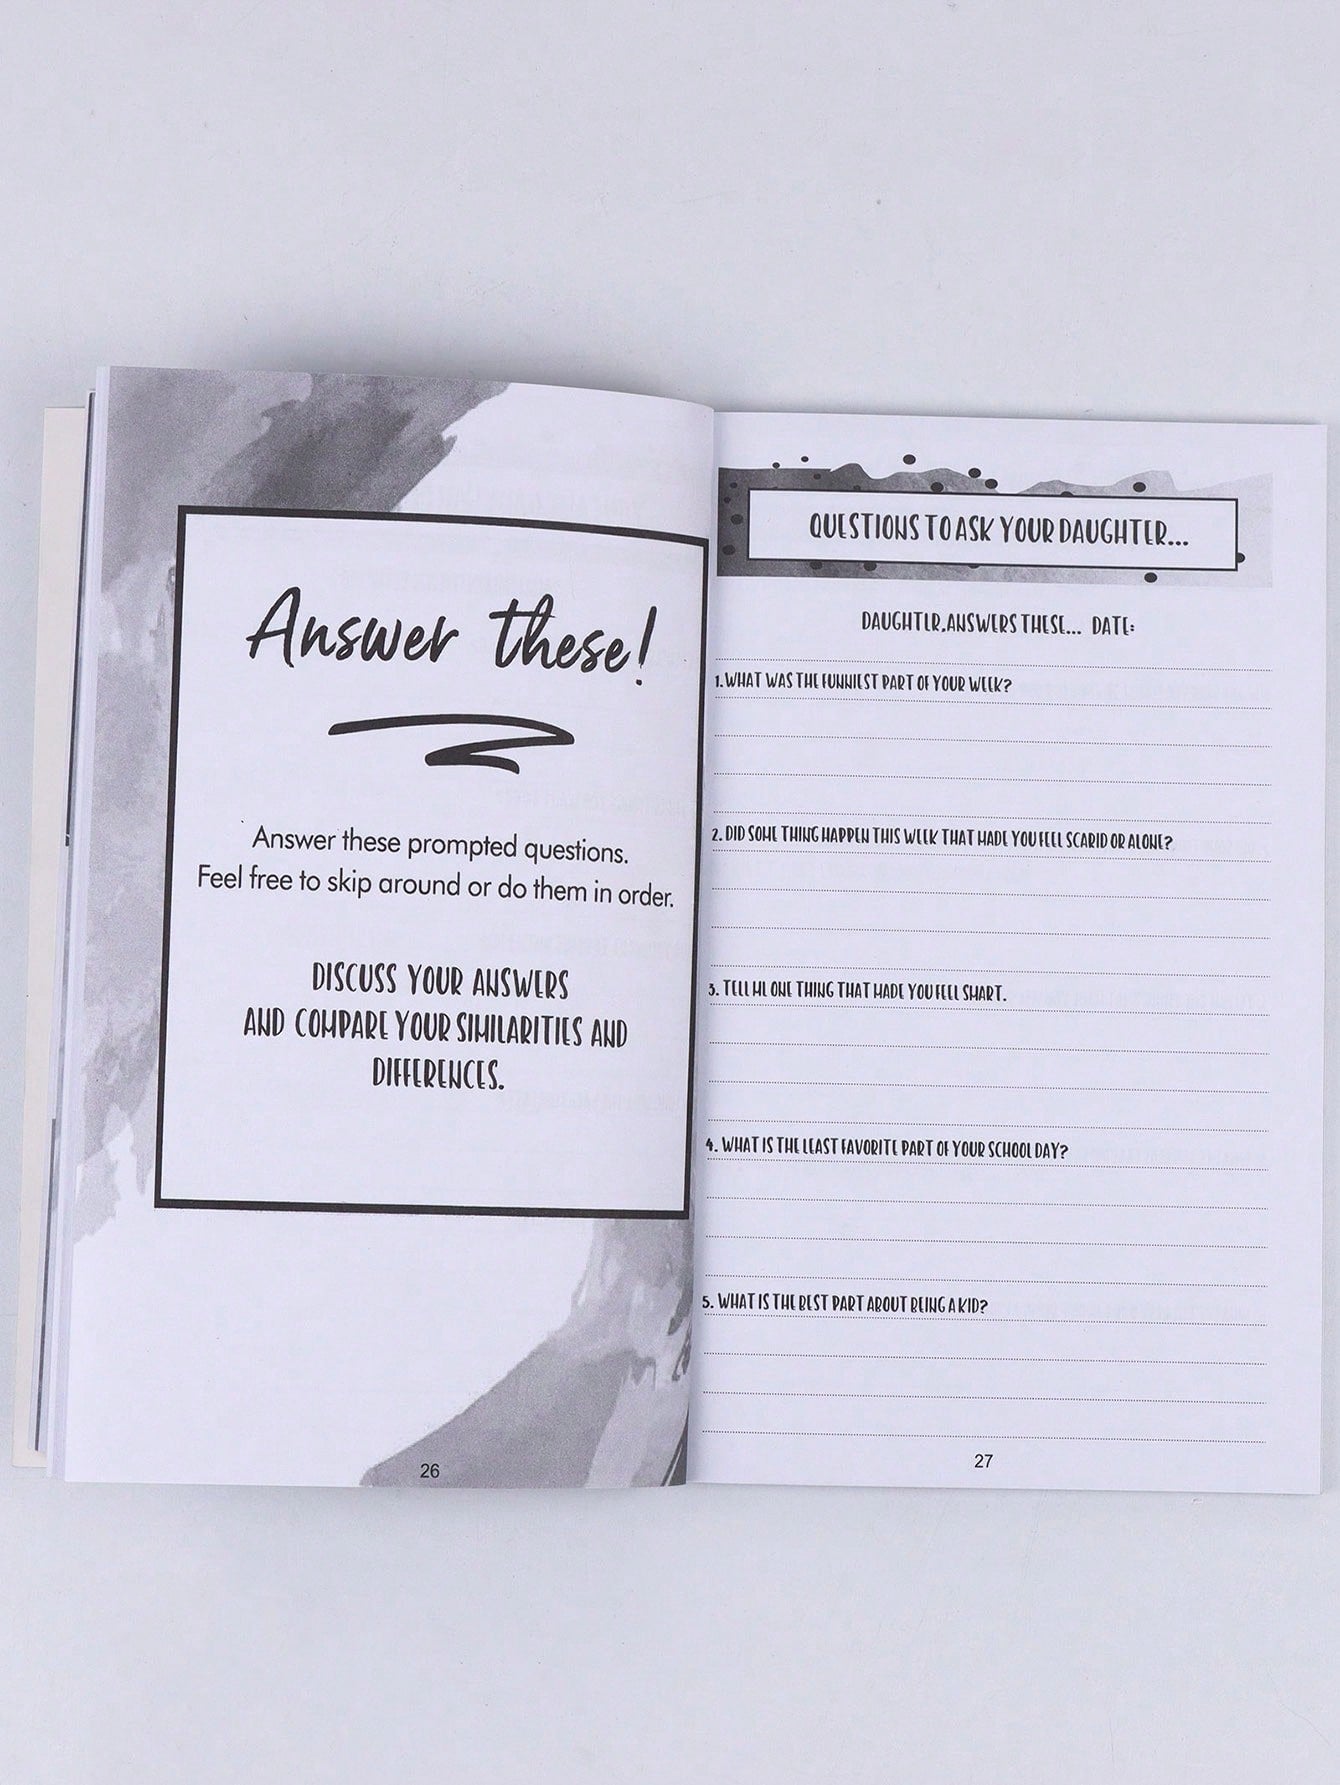 Answer these!
Answer these prompted questions.
Feel free to skip around or do them in order.
DISCUSS YOUR ANSWERS
AND COMPARE YOUR SIMILARITIES AND
DIFFERENCES.
26
QUESTIONS TO ASK YOUR DAUGHTER...
DAUGHTER,ANSWERS THESE... DATE:
1.WHAT WAS THE FUNNIEST PART OF YOUR WEEK?
2. DID SOME THING HAPPEN THIS WEEK THAT MADE YOU FEEL SCARID OR ALONE?
3. TELL ME ONE THING THAT MADE YOU FEEL SMART.
4. WHAT IS THE LEAST FAVORITE PART OF YOUR SCHOOL DAY?
5. WHAT IS THE BEST PART ABOUT BEING A KID?
27